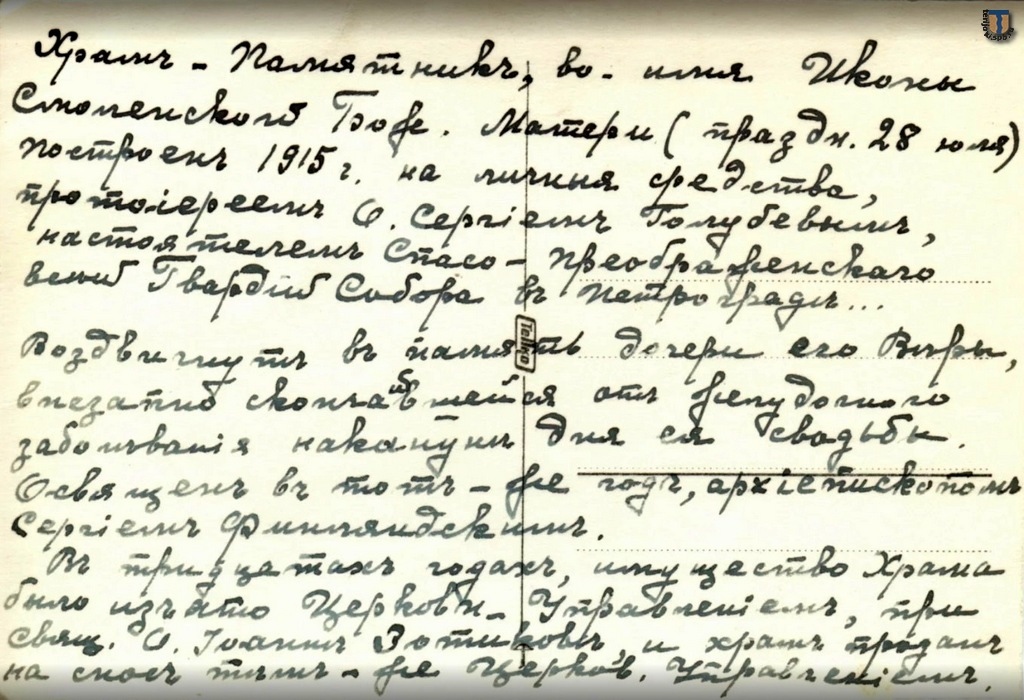 Храмъ - Памятникъ, во - имя Иконы
Смоленской Боже. Матери ( праздн. 28 юля)
построенъ 1915 г. на личныя средства,
протоіереемъ О. Сергіемъ Голубевымъ,
настоятелемъ Спасо - Преображенскаго
всей Гвардіи Собора въ Петроградѣ...
Воздвигнутъ въ память дочери его Вѣры,
внезапно скончавшейся отъ желудочнаго
заболѣванія наканунѣ дня ея свадьбы.
Освященъ въ тотъ - же годъ, архіепископомъ
Сергіемъ Финляндскимъ.
Въ тридцатахъ годахъ, имущество Храма
было изъято Церковн. Управленіемъ, при
свящ. О. Іоаннѣ Зотиковѣ, и храмъ проданъ
на сносъ тѣмъ - же Церков. Управленіемъ.
Tolko
terijoki.spb.ru